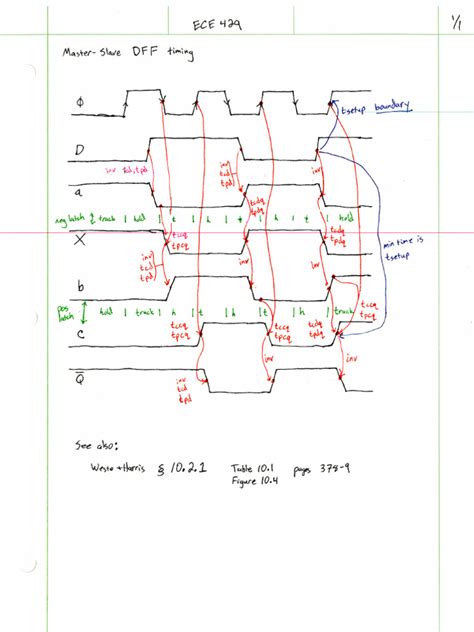 ECE 429
1/1
Master-Slave DFF timing
ϕ
tsetup boundary
D
inv tcd,tpd
inv
tcd
tpd
inv
a
tcdq
tpdq
tcdq
tpdq
neg latch track | hold | t | h | t | h | t | hold
X
tccq
tpcq
inv
tcd
tpd
inv
inv
min time is
tsetup
b
tccq
tpcq
pos
latch
hold | track | h | t | h | t | h | track
C
tccq
tpcq
tccq
tpcq
tcdq
tpdq
Q
inv
tcd
tpd
inv
inv
See also:
Weste + Harris § 10.2.1 Table 10.1 pages 378-9
Figure 10.4